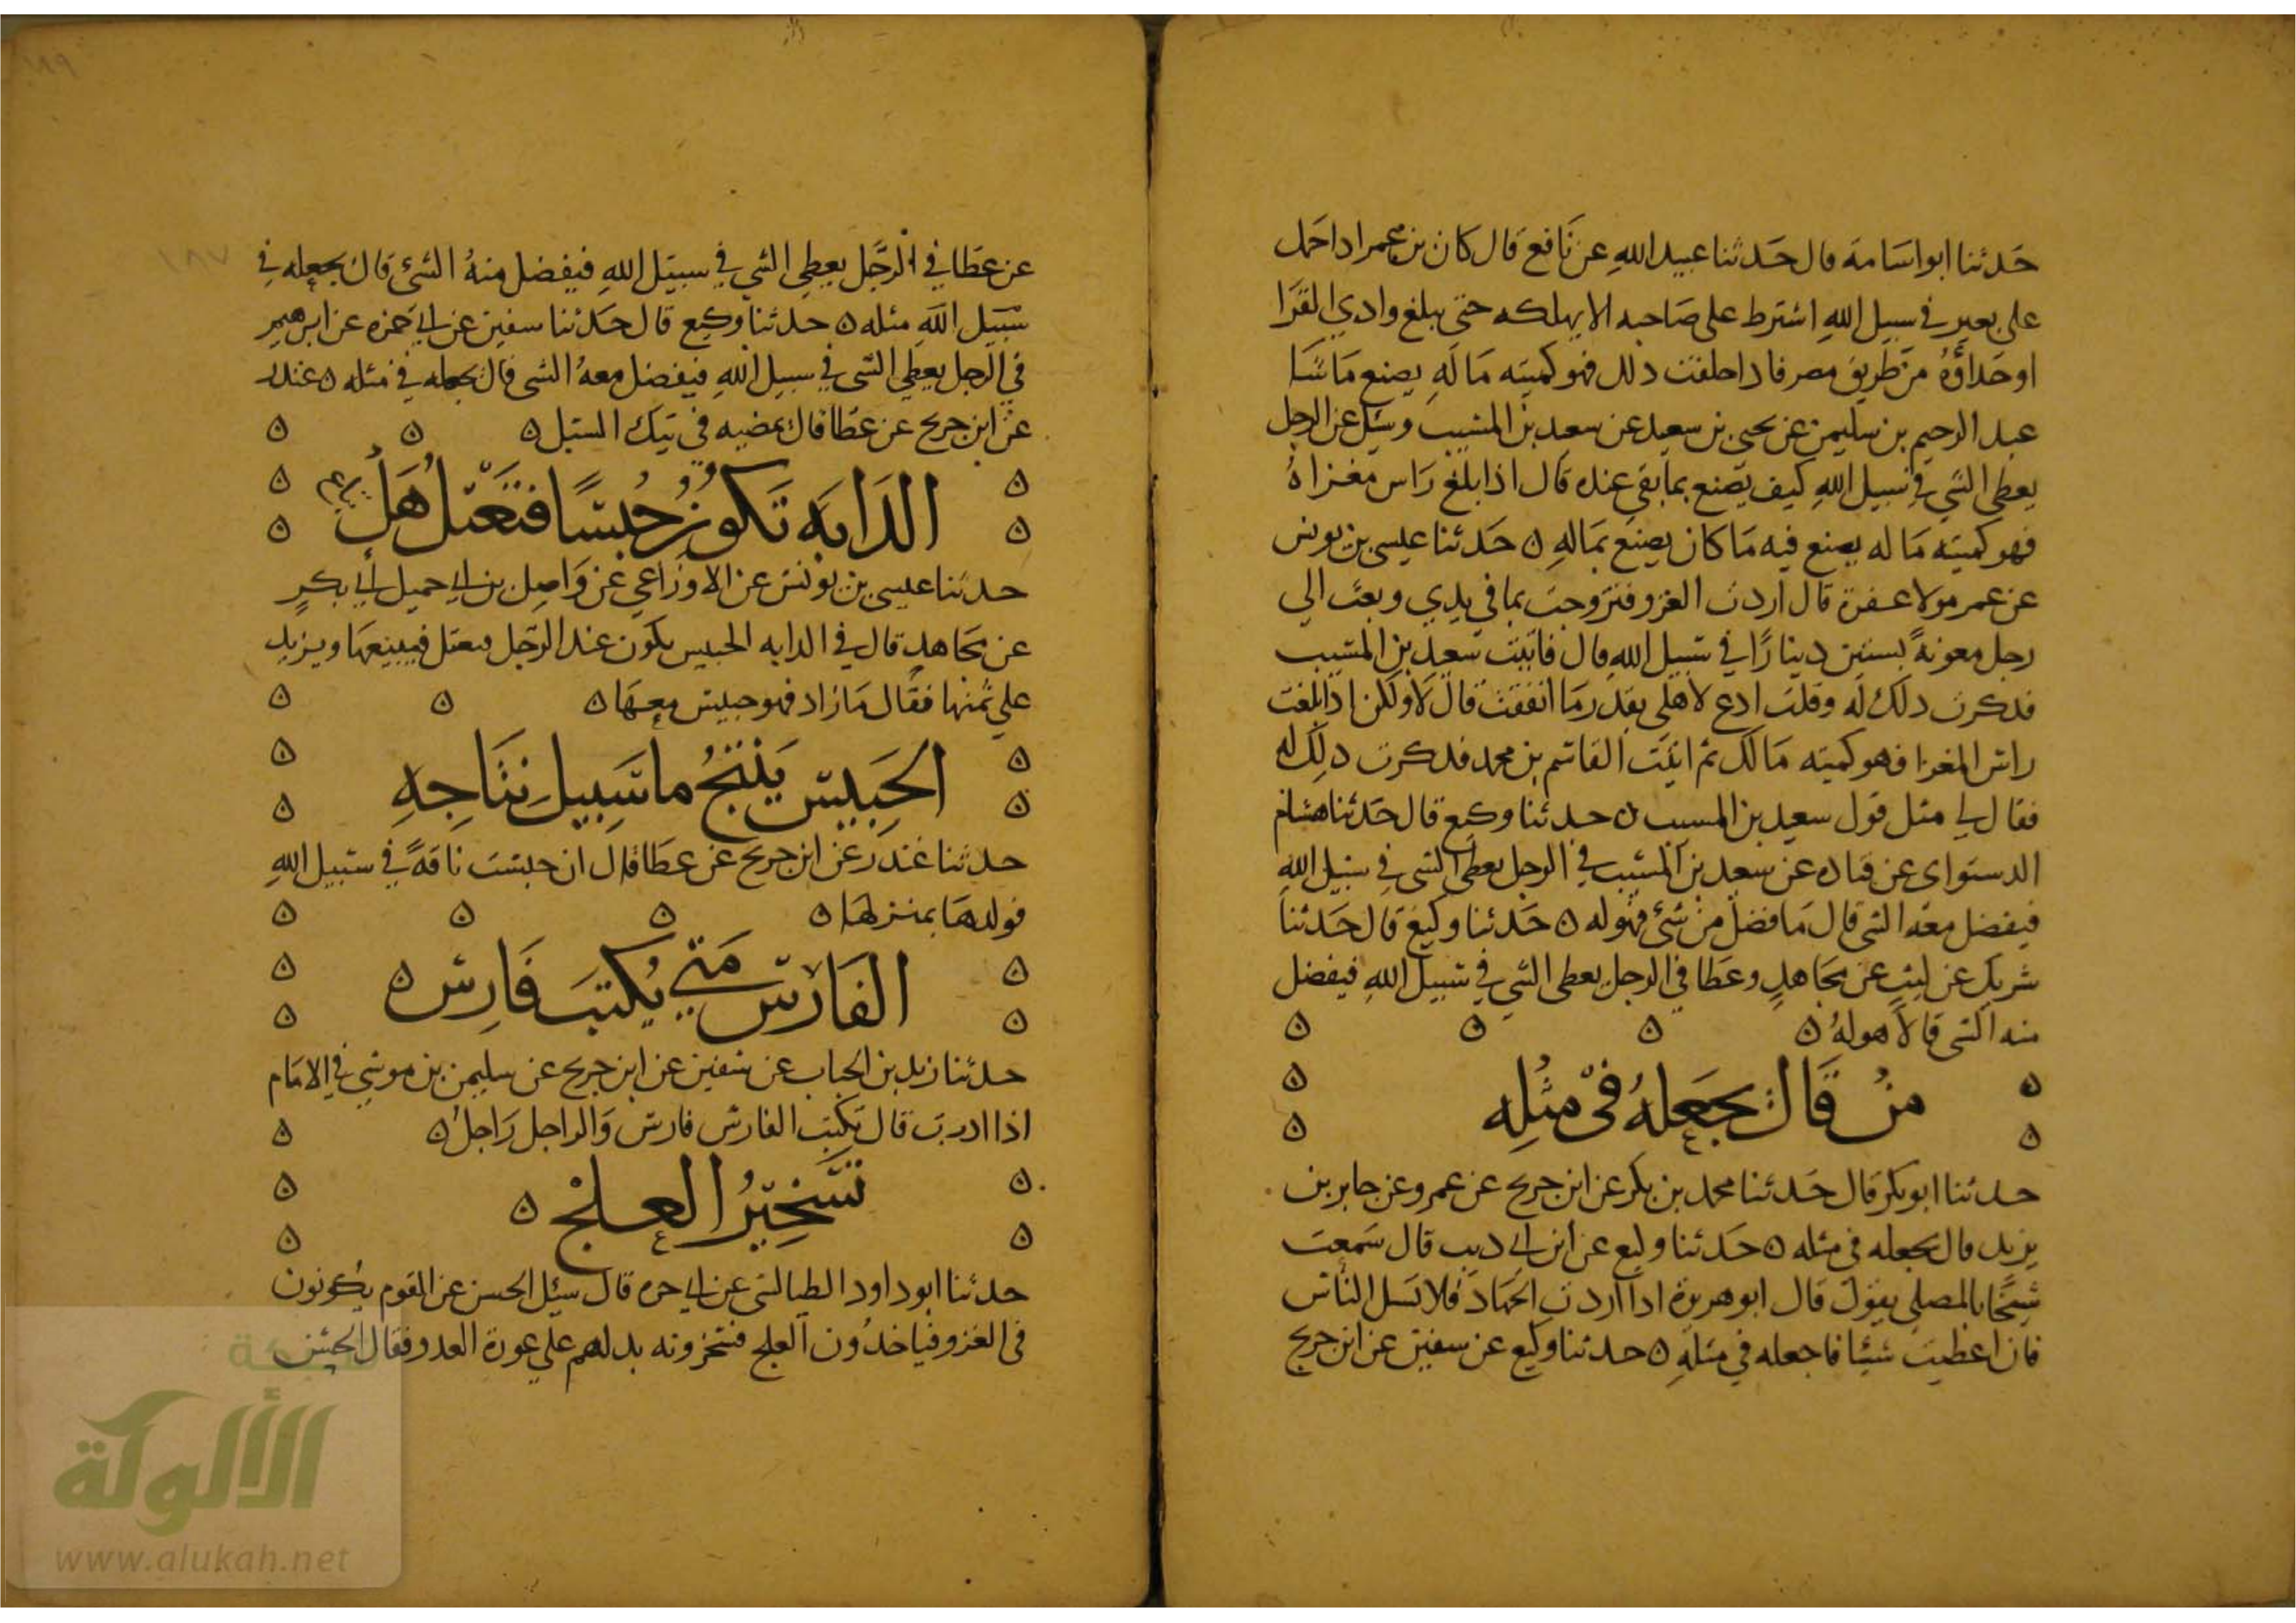 حَدثنا ابو اسَامه قال حَدثنا عبيد الله عن نَافع قال كان بن عمر اذا حَمل
على بعير في سبيل اللهِ اشترط على صَاحبه الا يهلكه حتى يبلغ وادي القرا
او حَذاؤهُ من طريق مصر فاذا خلفت ذلك فهو كهيئه مَا لَهِ يصنع مَا شا
عبد الرحيم بن سليمن عن يحيى بن سعيد عن سعيد بن المسيب وسئل عن الرجل
يعطى الشي في سبيل اللهِ كيف يصنع بما بقي عنده قال اذا بلغ رَاس مغزاهُ
فهو كهيئه مَا له يصنع فيه مَا كان يصنع بمَالهِ ه حَدثنا عيسى بن يونس
عن عمر مولا عفرة قال اردت الغزو فتزوجت بما في يدي وبعث الي
رجل معونهً بستين دينارًا في سبيل اللهِ قال فاتيت سعيد بن المسيب
فذكرت ذلك له وقلت ادع لاهلي بقدر مَا انفقت قال لا ولكن اذا بلغت
راس المغزا فهو كهيئه مَالك ثم اتيت القاسم بن محمد فذكرت ذلك له
فقال لي مثل قول سعيد بن المسيب ه حدثنا وكيع قال حَدثنا هشام
الدستواي عن قتاده عن سعيد بن المسيب في الرجل يعطى الشي في سبيل اللهِ
فيفضل معه الشي قال مَا فضل من شئ فهو له ه حَدثنا وكيع قال حَدثنا
شريك عن ليث عن مجَاهدٍ وعَطا في الرجل يعطى الشي في سبيل اللهِ فيفضل
منه الشي قالا هو لهُ ه ه ه ه
ه من قَال يجعَلهُ في مثلِه ه
حدثنا ابو بكر قال حَدثنا محمد بن بكر عن ابن جريج عن عمرو عن جابر بن
يزيد قال يجعله في مثله ه حَدثنا وكيع عن ابن ابي ذيب قال سَمعت
شيخًا بالمصلى يقول قال ابو هريرة اذا اردت الجهَاد فلا تسل الناس
فان اعطيت شيئا فاجعله في مثلهِ ه حدثنا وكيع عن سفين عن ابن جريج
عن عَطا في الرَّجل يعطى الشي في سبيل اللهِ فيفضل منهُ الشئ قال يجعله في
سَبيل اللهِ مثله ه حدثنا وكيع قال حَدثنا سفين عن ابي حَمزه عن ابرهيم
في الرجل يعطي الشي في سبيل اللهِ فيفضل معهُ الشي قال يجعله في مثله ه غندر
عن ابن جريج عن عَطا قال يمضيه في تيك السبل ه ه ه
ه الدَابه تَكونُ حُبسًا فتعْتل هَل ه
حدثنا عيسى بن يونس عن الاوزَاعي عن وَاصِل بن ابي جميل ابي بكرٍ
عن مجَاهدٍ قال في الدابه الحبيس يكون عند الرّجل فتعتل فيبيعهَا ويزيد
على ثمنها فقال مَا زاد فهو حبيس معهَا ه ه ه
ه الحَبيس يَنتجُ ما سَبيل نتَاجِهِ ه
حدثنا غندر عن ابن جريج عن عطَا قال ان حبست ناقهً في سبيل اللهِ
فولدهَا بمنزلهَا ه ه ه ه
ه الفَارس مَتى يُكتبَ فَارِس ه ه
حدثنا زيد بن الحباب عن سفين عن ابن جريج عن سليمن بن موسي في الامَام
اذا ادرب قال يكتب الفارس فارس وَالراجل رَاجل ه ه
ه تسَخيرُ العلجْ ه ه
حدثنا ابو داود الطيالسي عن ابي حره قال سئل الحسن عن القوم يكونون
في الغزو فياخذون العلج فيسخرونه يدلهم على عورة العدو فقال الحسن
الألوكة
www.alukah.net